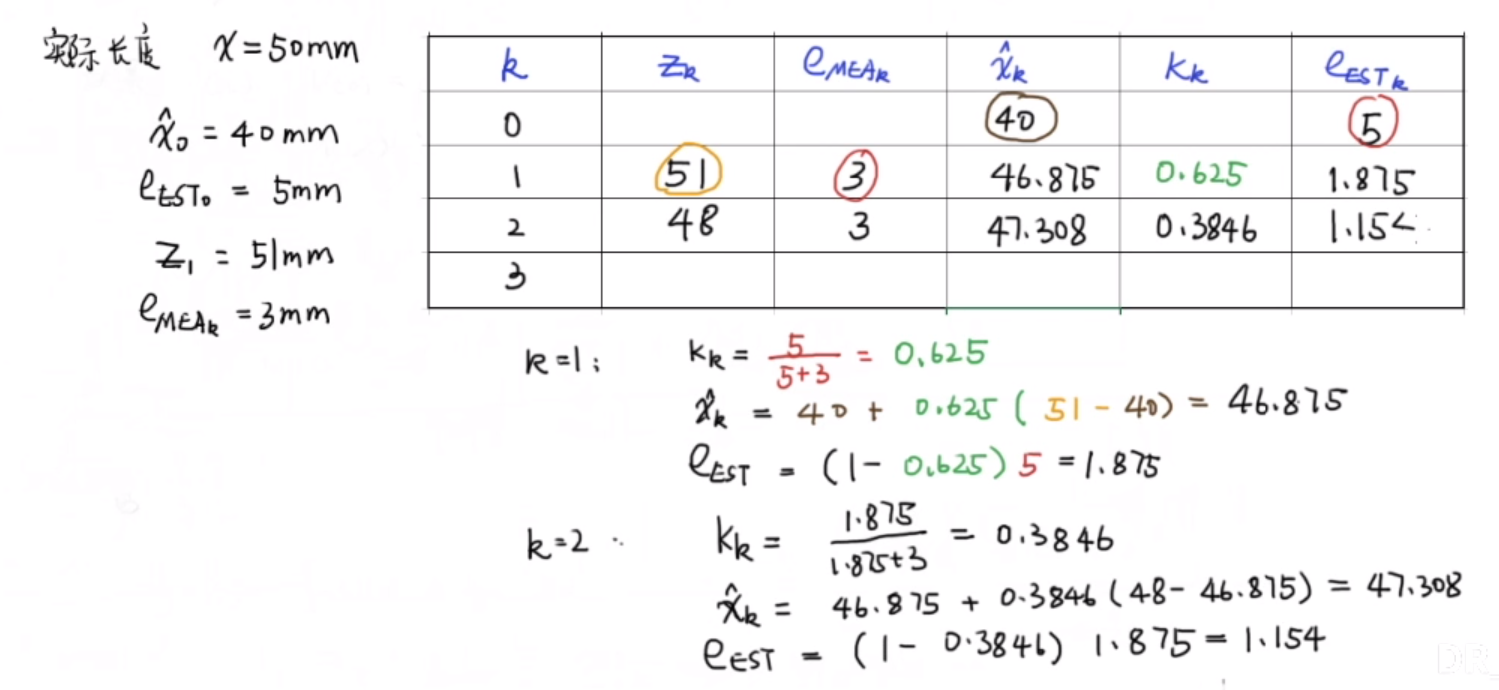 实际长度 x = 50mm
x̂₀ = 40mm
e_EST₀ = 5mm
z₁ = 51mm
e_MEAₖ = 3mm
k zₖ e_MEAₖ x̂ₖ Kₖ e_ESTₖ
0 40 5
1 51 3 46.875 0.625 1.875
2 48 3 47.308 0.3846 1.154
3
k=1: Kₖ = 5/(5+3) = 0.625
x̂ₖ = 40 + 0.625 (51 - 40) = 46.875
e_EST = (1 - 0.625) 5 = 1.875
k=2: Kₖ = 1.875/(1.875+3) = 0.3846
x̂ₖ = 46.875 + 0.3846 (48 - 46.875) = 47.308
e_EST = (1 - 0.3846) 1.875 = 1.154
DR_